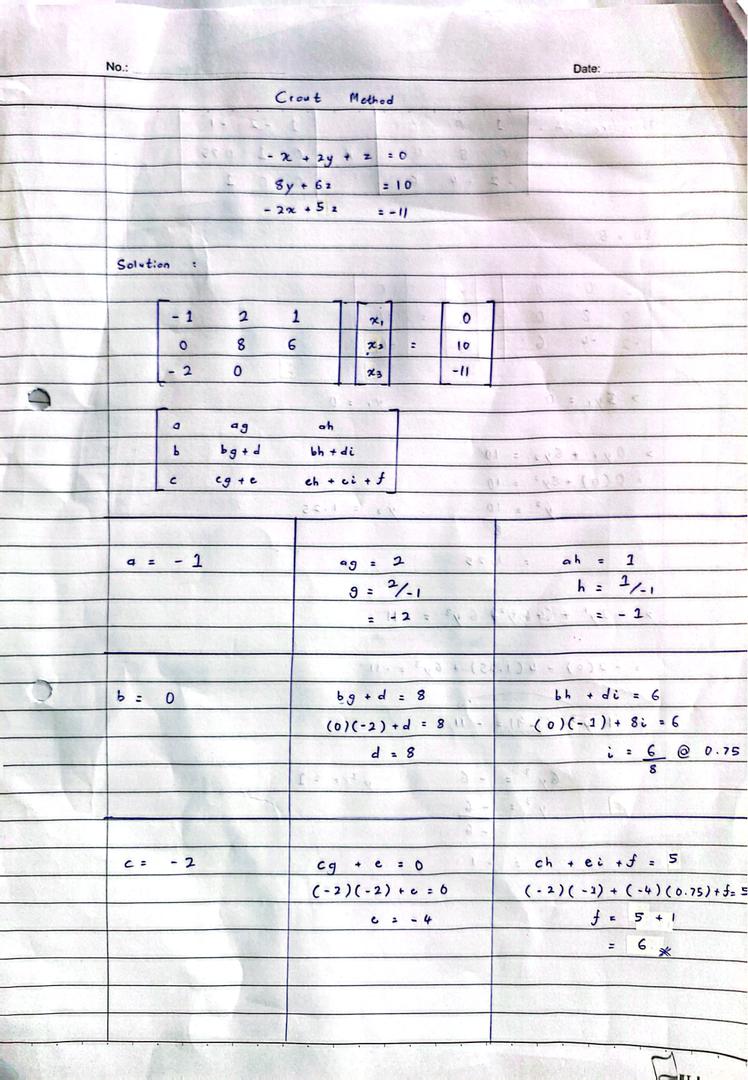 No.:
Date:
Crout Method
- x + 2y + z = 0
8y + 6z = 10
- 2x + 5z = -11
Solution :
- 1 2 1 x₁ 0
0 8 6 x₂ = 10
- 2 0 x₃ -11
a ag ah
b bg + d bh + di
c cg + e ch + ei + f
a = - 1
ag = 2
g = 2/-1
= -2
ah = 1
h = 1/-1
= - 1
b = 0
bg + d = 8
(0)(-2) + d = 8
d = 8
bh + di = 6
(0)(-1) + 8i = 6
i = 6/8 @ 0.75
c = - 2
cg + e = 0
(-2)(-2) + e = 0
e = - 4
ch + ei + f = 5
(-2)(-1) + (-4)(0.75) + f = 5
f = 5 + 1
= 6